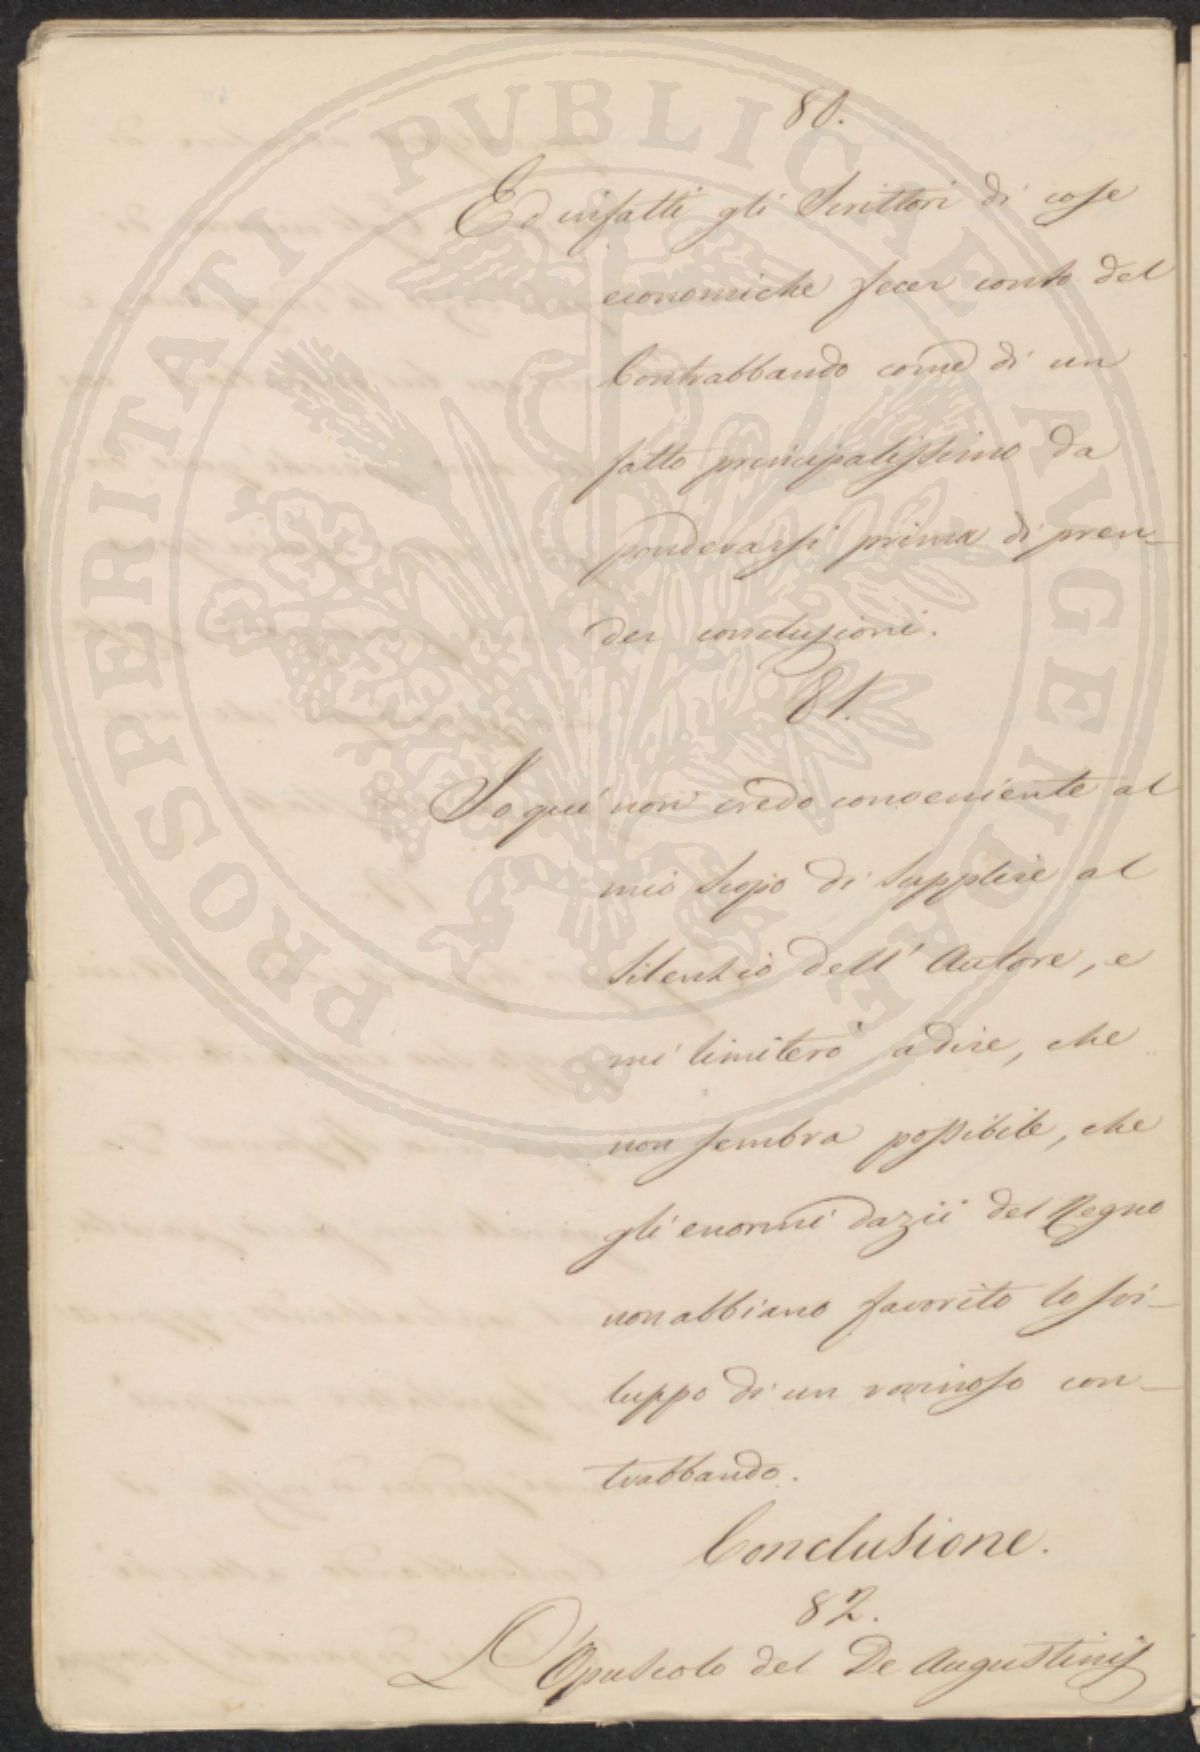 PROSPERITATI PVBLICAE AVGENDAE
80.
Ed infatti gli Scrittori di cose
economiche fecer conto del
Contrabbando come di un
fatto principalissimo da
ponderarsi prima di pren-
der conclusioni.
81.
Io qui non credo conveniente al
mio scopo di supplire al
silenzio dell' Autore, e
mi limiterò a dire, che
non sembra possibile, che
gli enormi dazii del Regno
non abbiano favorito lo svi-
luppo di un rovinoso con-
trabbando.
Conclusione.
82.
L'Opuscolo del De Augustinis